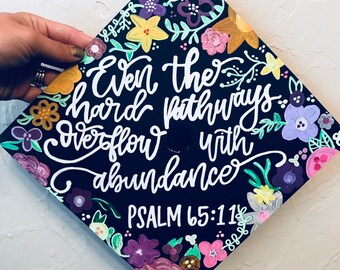 Even the
hard pathways
overflow with
abundance
PSALM 65:11